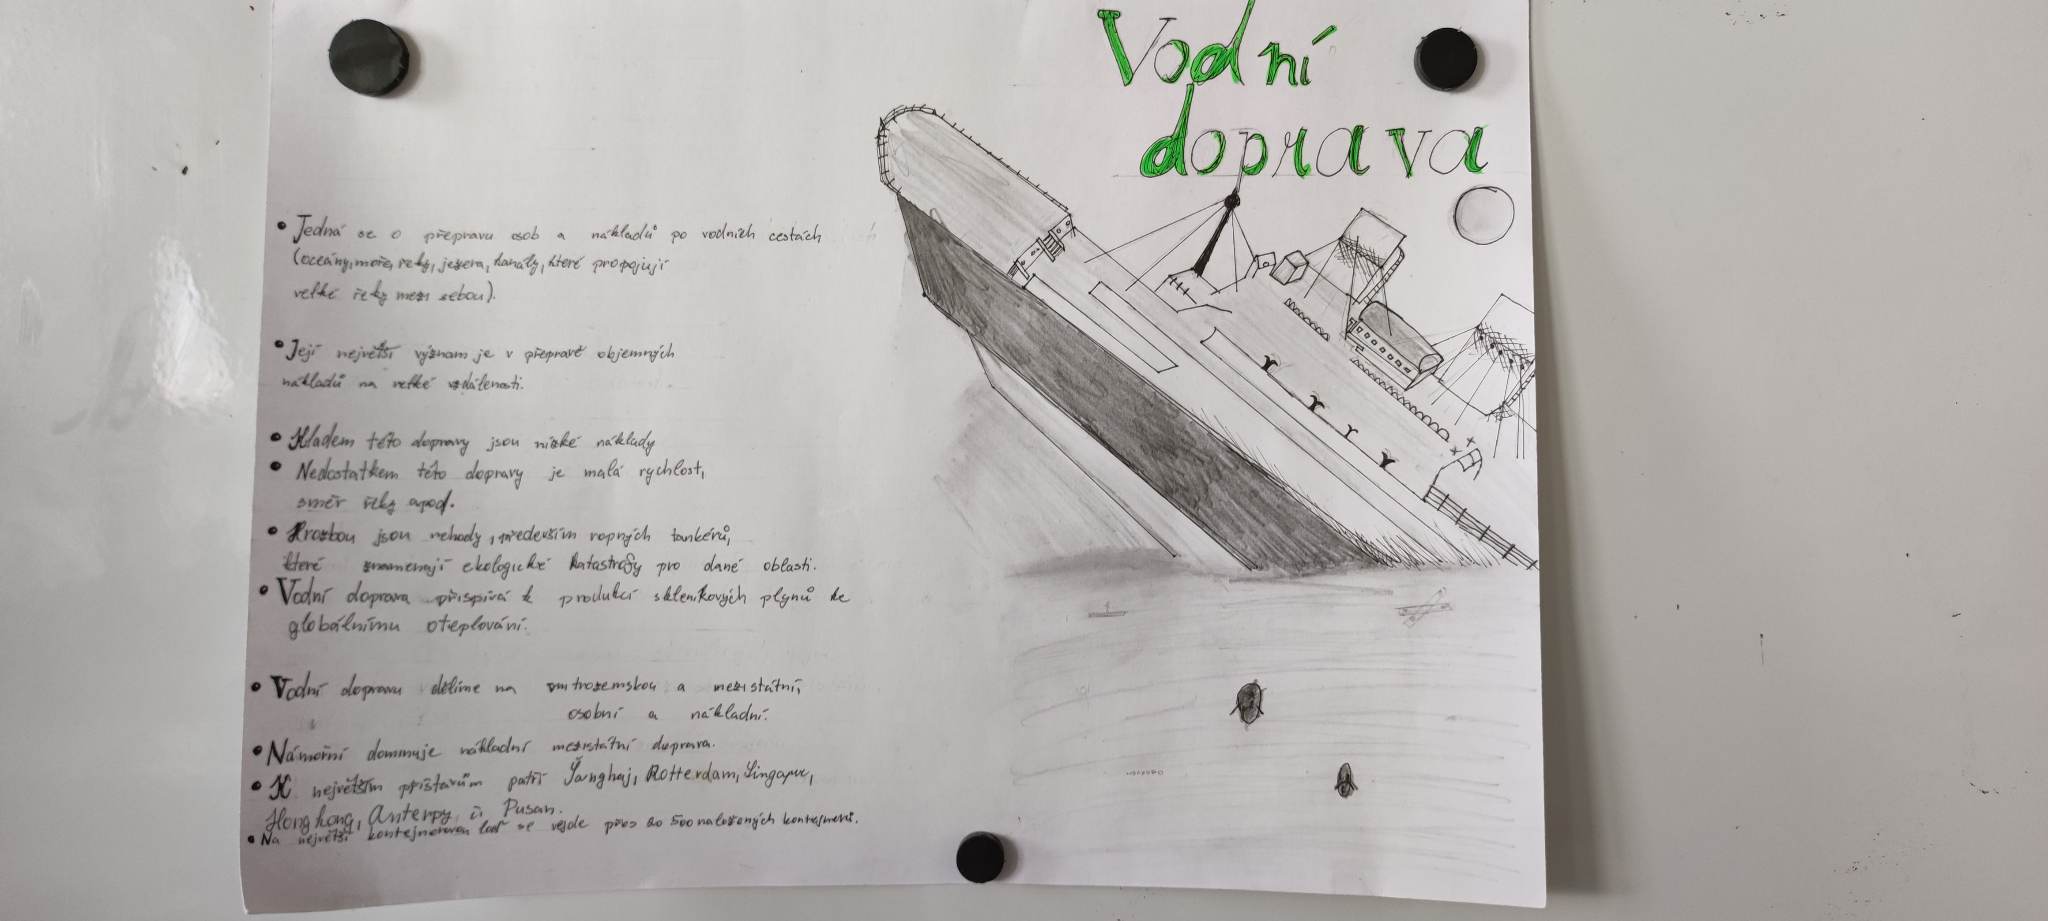 Vodní
doprava
• Jedná se o přepravu osob a nákladů po vodních cestách
(oceány, moře, řeky, jezera, kanály, které propojují
velké řeky mezi sebou).
• Její největší význam je v přepravě objemných
nákladů na velké vzdálenosti.
• Kladem této dopravy jsou nízké náklady
• Nedostatkem této dopravy je malá rychlost,
směr řeky apod.
• Hrozbou jsou nehody, především ropných tankérů,
které znamenají ekologické katastrofy pro dané oblasti.
• Vodní doprava přispívá k produkci skleníkových plynů ke
globálnímu oteplování.
• Vodní dopravu dělíme na vnitrozemskou a mezistátní,
osobní a nákladní.
• Námořní dominuje nákladní mezistátní doprava.
• K největším přístavům patří Šanghaj, Rotterdam, Singapur,
Hongkong, Anterpy, či Pusan.
• Na největší kontejnerovou loď se vejde přes 20 500 naložených kontejnerů.